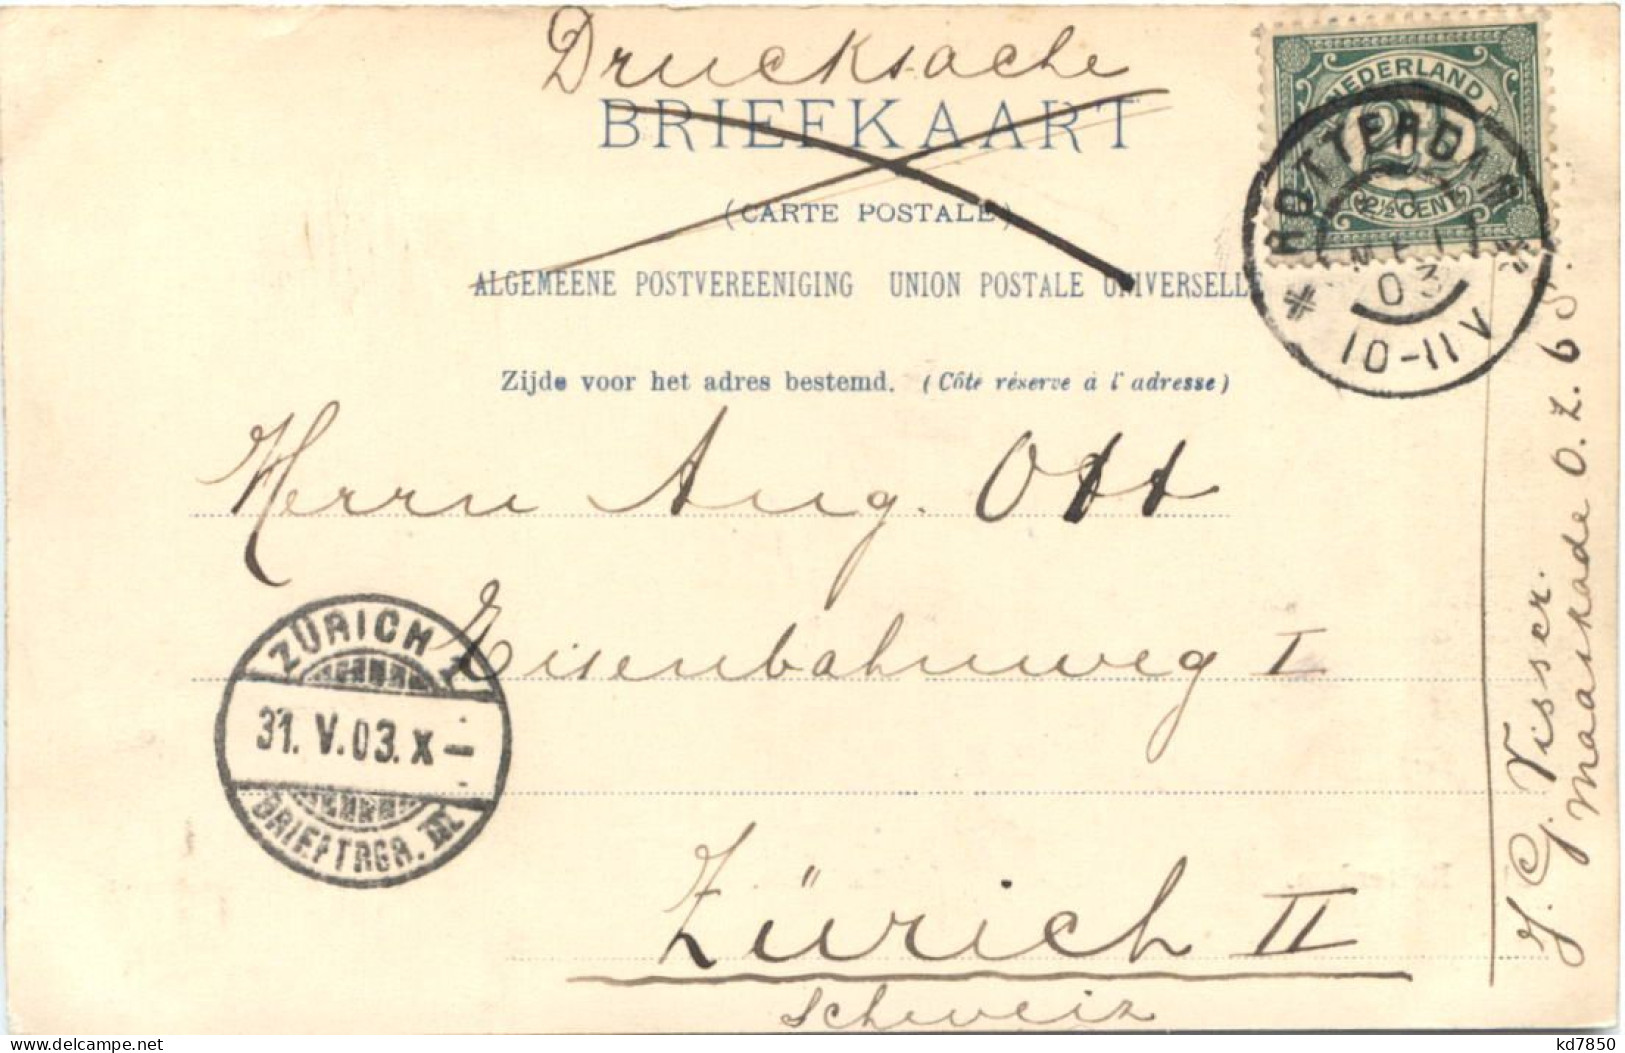 Drucksache
BRIEFKAART
(CARTE POSTALE)
ALGEMEENE POSTVEREENIGING UNION POSTALE UNIVERSELLE
Zijde voor het adres bestemd. (Côté réservé à l'adresse)
NEDERLAND
2½
2½ CENT
ROTTERDAM
MEI
03
10-11 V
Herrn Aug. Ott
Eisenbahnweg I
Zürich II
Schweiz
ZÜRICH
31. V. 03. X –
BRIEFTRGR. III
J. G. Visser.
Maaskade O.Z. 68.
Delcampe.net
kd7850